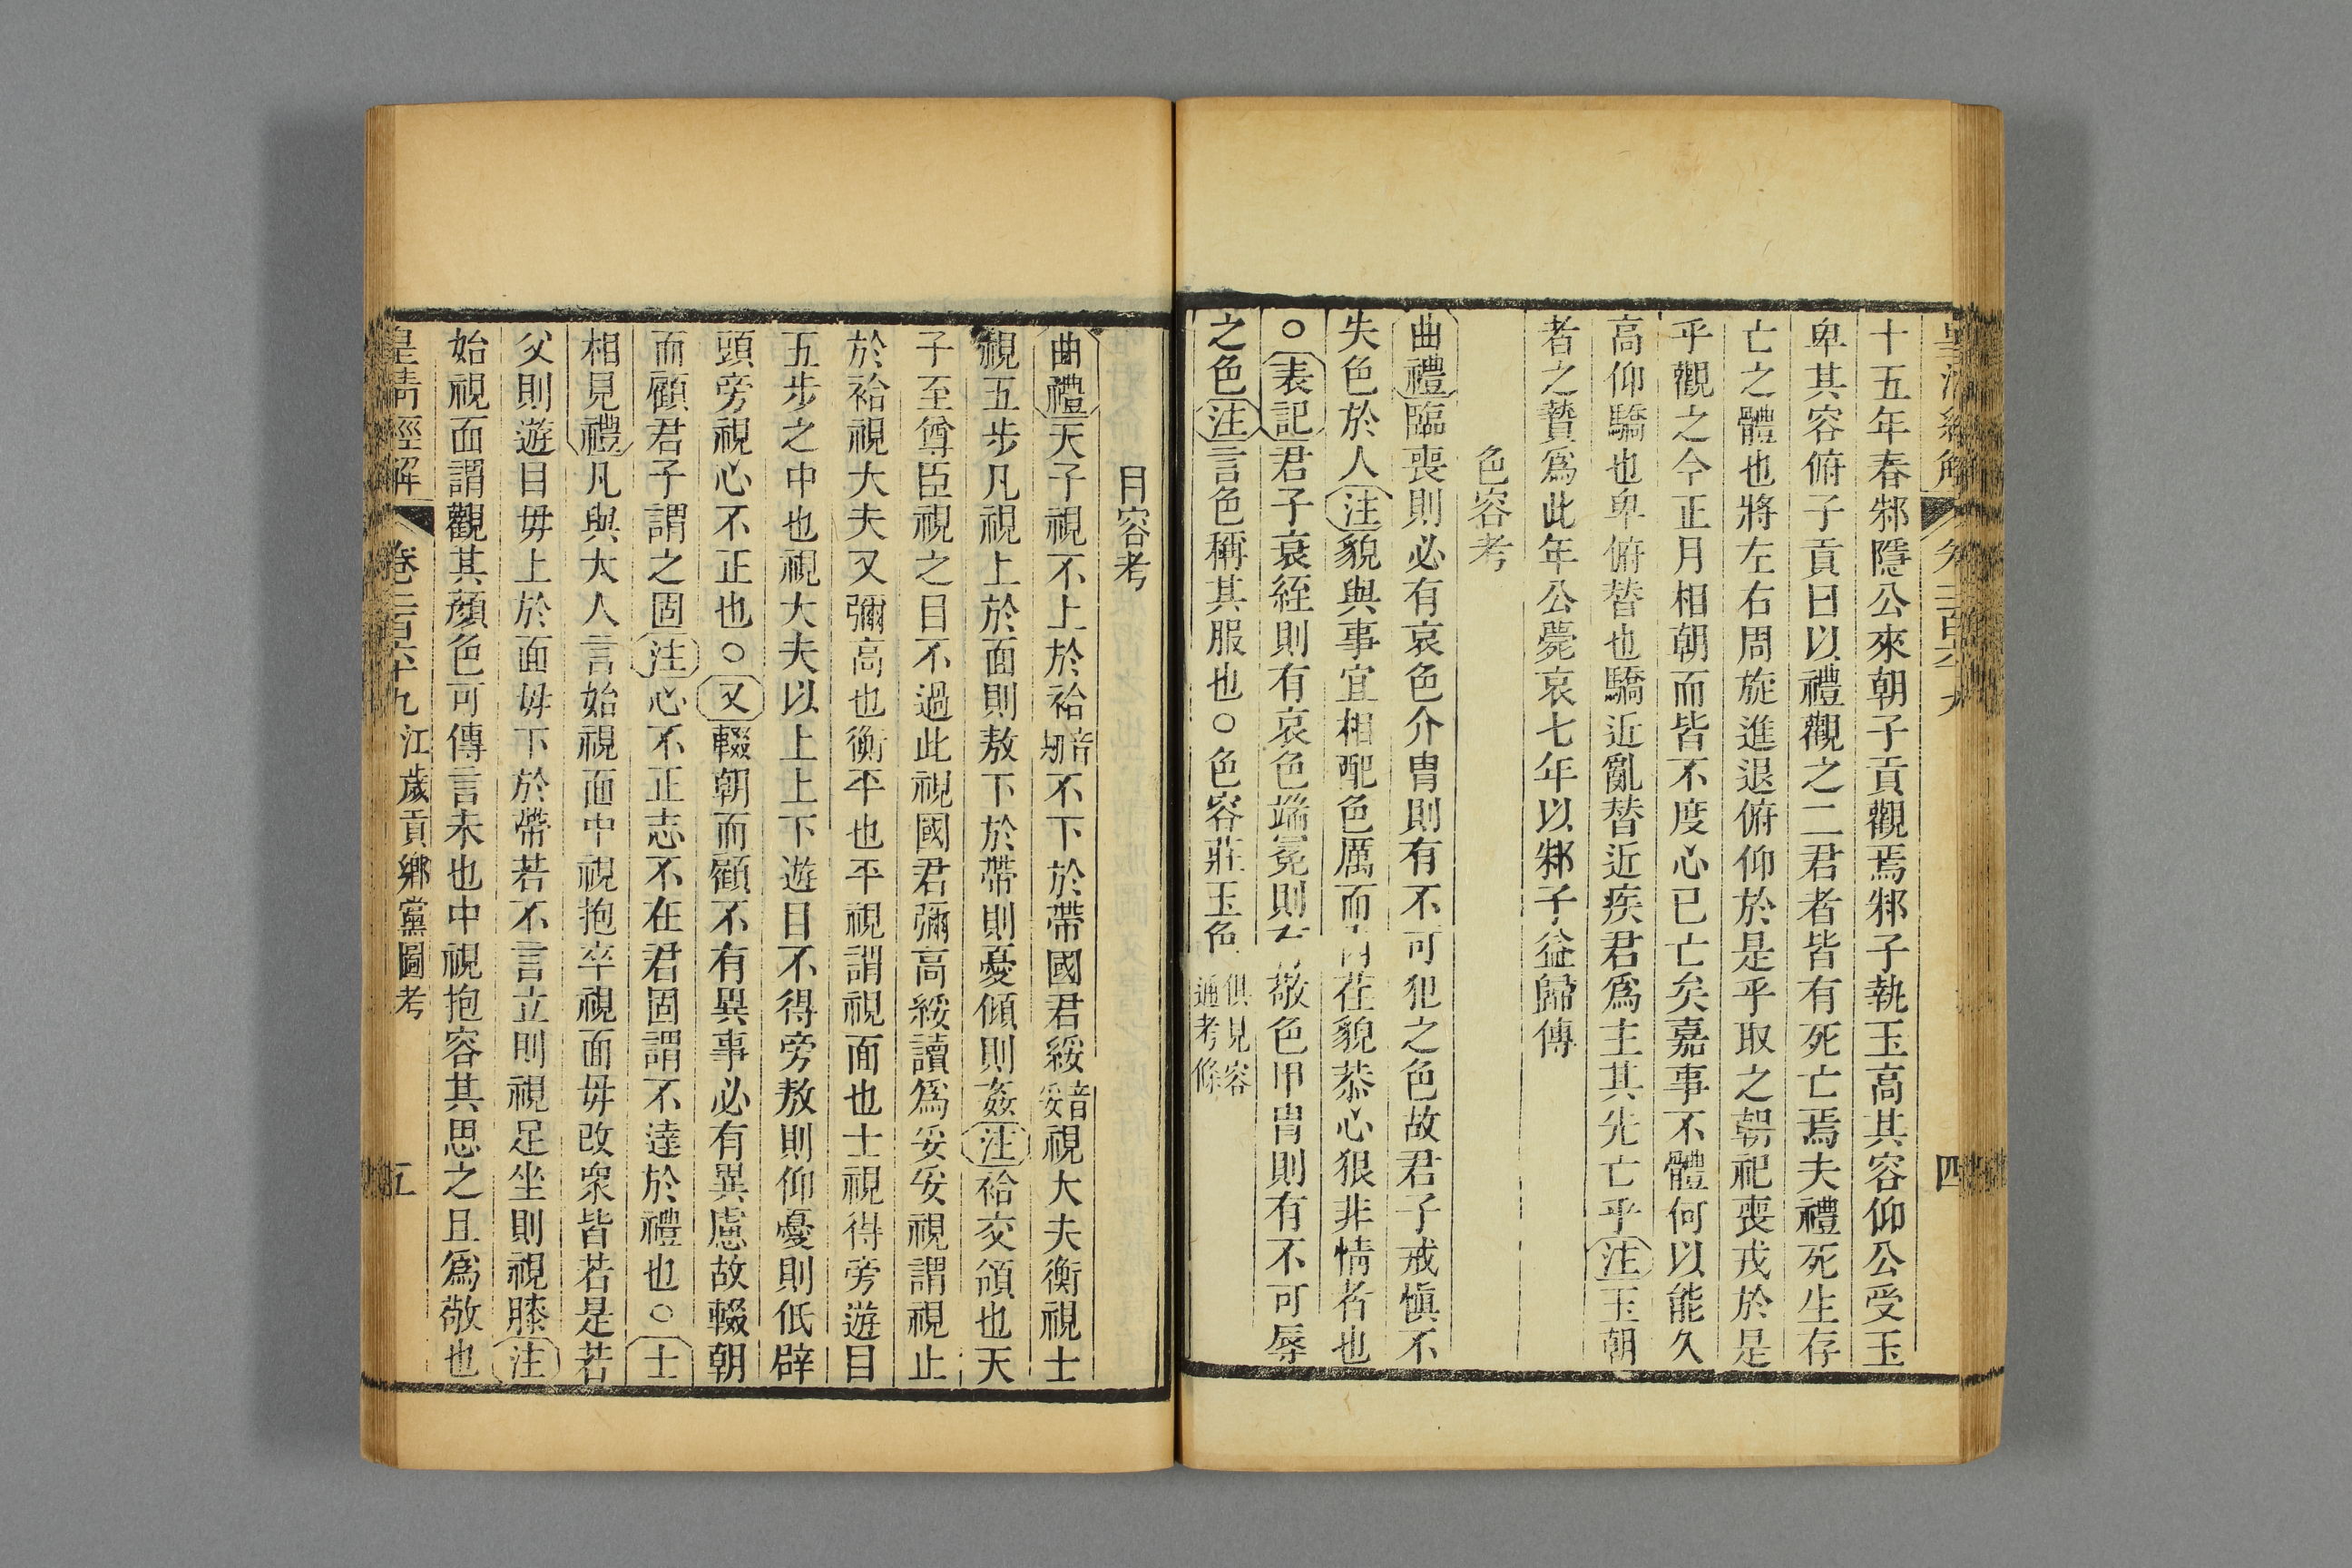 四
十五年春邾隱公來朝子貢觀焉邾子執玉高其容仰公受玉
卑其容俯子貢曰以禮觀之二君者皆有死亡焉夫禮死生存
亡之體也將左右周旋進退俯仰於是乎取之朝祀喪戎於是
乎觀之今正月相朝而皆不度心已亡矣嘉事不體何以能久
高仰驕也卑俯替也驕近亂替近疾君爲主其先亡乎注玉朝
者之贄爲此年公薨哀七年以邾子益歸傳
色容考
曲禮臨喪則必有哀色介冑則有不可犯之色故君子戒愼不
失色於人注貌與事宜相配色厲而內荏貌恭心狠非情者也
○表記君子衰絰則有哀色端冕則有敬色甲冑則有不可辱
之色注言色稱其服也○色容莊玉色俱見容
通考條
目容考
曲禮天子視不上於袷音
刧不下於帶國君綏音
妥視大夫衡視士
視五步凡視上於面則敖下於帶則憂傾則姦注袷交領也天
子至尊臣視之目不過此視國君彌高綏讀爲妥妥視謂視止
於袷視大夫又彌高也衡平也平視謂視面也士視得旁遊目
五步之中也視大夫以上上下遊目不得旁敖則仰憂則低辟
頭旁視心不正也○又輟朝而顧不有異事必有異慮故輟朝
而顧君子謂之固注心不正志不在君固謂不達於禮也○士
相見禮凡與大人言始視面中視抱卒視面毋改衆皆若是若
父則遊目毋上於面毋下於帶若不言立則視足坐則視膝注
始視面謂觀其顔色可傳言未也中視抱容其思之且爲敬也
皇清經解 卷二百六十九 江歲貢鄉黨圖考 五